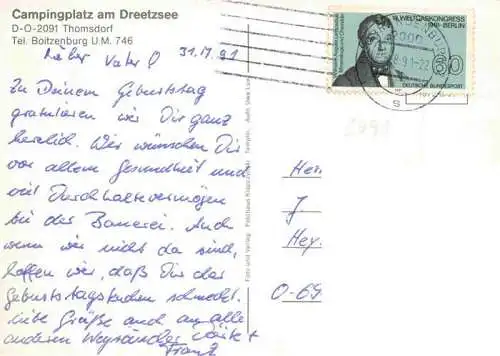 Campingplatz am Dreetzsee
D-O-2091 Thomsdorf
Tel. Boitzenburg U.M. 746
Lieber Vater! 31.
Zu Deinem Geburtstag
gratulieren wir Dir ganz
herzlich. Wir wünschen Dir
vor allem Gesundheit und
viel Durchhaltevermögen
bei der Bauerei. Auch
wenn wir nicht da sind,
hoffen wir, daß Dir der
Geburtstagskuchen schmeckt.
Liebe Grüße auch an alle
anderen
Franz
WELTGASKONGRESS
BERLIN
60
DEUTSCHE BUNDESPOST
Herr
J
Hey.
O-69